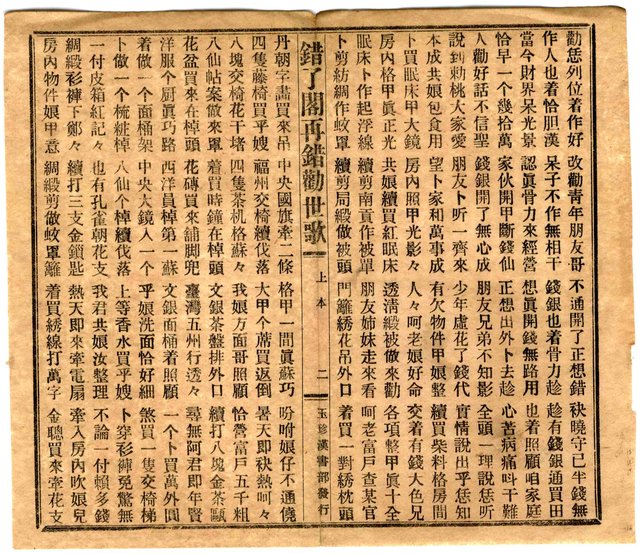 勸恁列位着作好 改勸靑年朋友哥 不通開了正想錯 袂曉守己半錢無
作人也着恰胆漢 呆子不作無相干 錢銀也着骨力趁 趁有錢銀通買田
當今財界呆光景 認眞骨力來經營 想眞開錢無路用 也着照顧咱家庭
恰早一個幾拾萬 家伙開甲斷錢仙 正想出外卜去趁 心苦病痛叫干難
人勸好話不信聖 錢銀開了無心成 朋友兄弟不知影 全頭一理說恁听
說到勅桃大家愛 朋友卜听一齊來 少年虛花了錢代 實情說出乎恁知
本成共娘包食用 望卜家和萬事成 有欠物件甲娘整 續買柴料格房間
卜買眠床甲大鏡 房內照甲光影々 人々呵老娘好命 交着有錢大色兄
房內格甲眞正光 共娘續買紅眠床 透淸緞被做來勸 各項整甲眞十全
眠床卜作起浮線 續剪南貢作被單 朋友姉妹走來看 呵老富戶查某官
卜剪紡綢作蚊罩 續剪局緞做被頭 門籬綉花吊外口 着買一對綉枕頭
錯了閣再錯勸世歌 上本 二 玉珍漢書部發行
丹朝字畫買來吊 中央國旗牽二條 格甲一間眞蘇巧 吩咐娘仔不通僥
四隻藤椅買乎嫂 福州交椅續伐落 大甲个蓆買返倒 暑天即袂熱呵々
八塊交椅花干堵 四隻茶机格蘇々 我娘方面哥照顧 恰營富戶五千粗
八仙帖案做來罩 着買時鐘在棹頭 文銀茶盤排外口 續打八塊金茶甌
花盆買來在棹頭 花磚買來舖脚兜 臺灣五州行透々 尋無阿君即年賢
洋服个厨眞巧路 西洋員棹第一蘇 文銀面桶着照顧 一个卜買萬外圓
着做一個面桶架 中央大鏡入一个 乎娘洗面恰好細 煞買一隻交椅梯
卜做一个梳粧棹 八仙个棹續伐落 上等香水買乎嫂 卜穿彩褲免驚無
一付皮箱紅記々 也有孔雀朝花支 我君共娘汝整理 不論一付賴多錢
綢緞彩褲下鄭々 續打三支金鎖匙 熱天即來牽電扇 牽入房內吹娘兒
房內物件娘甲意 綢緞剪做蚊罩離 着買綉線打萬字 金聰買來牽花支